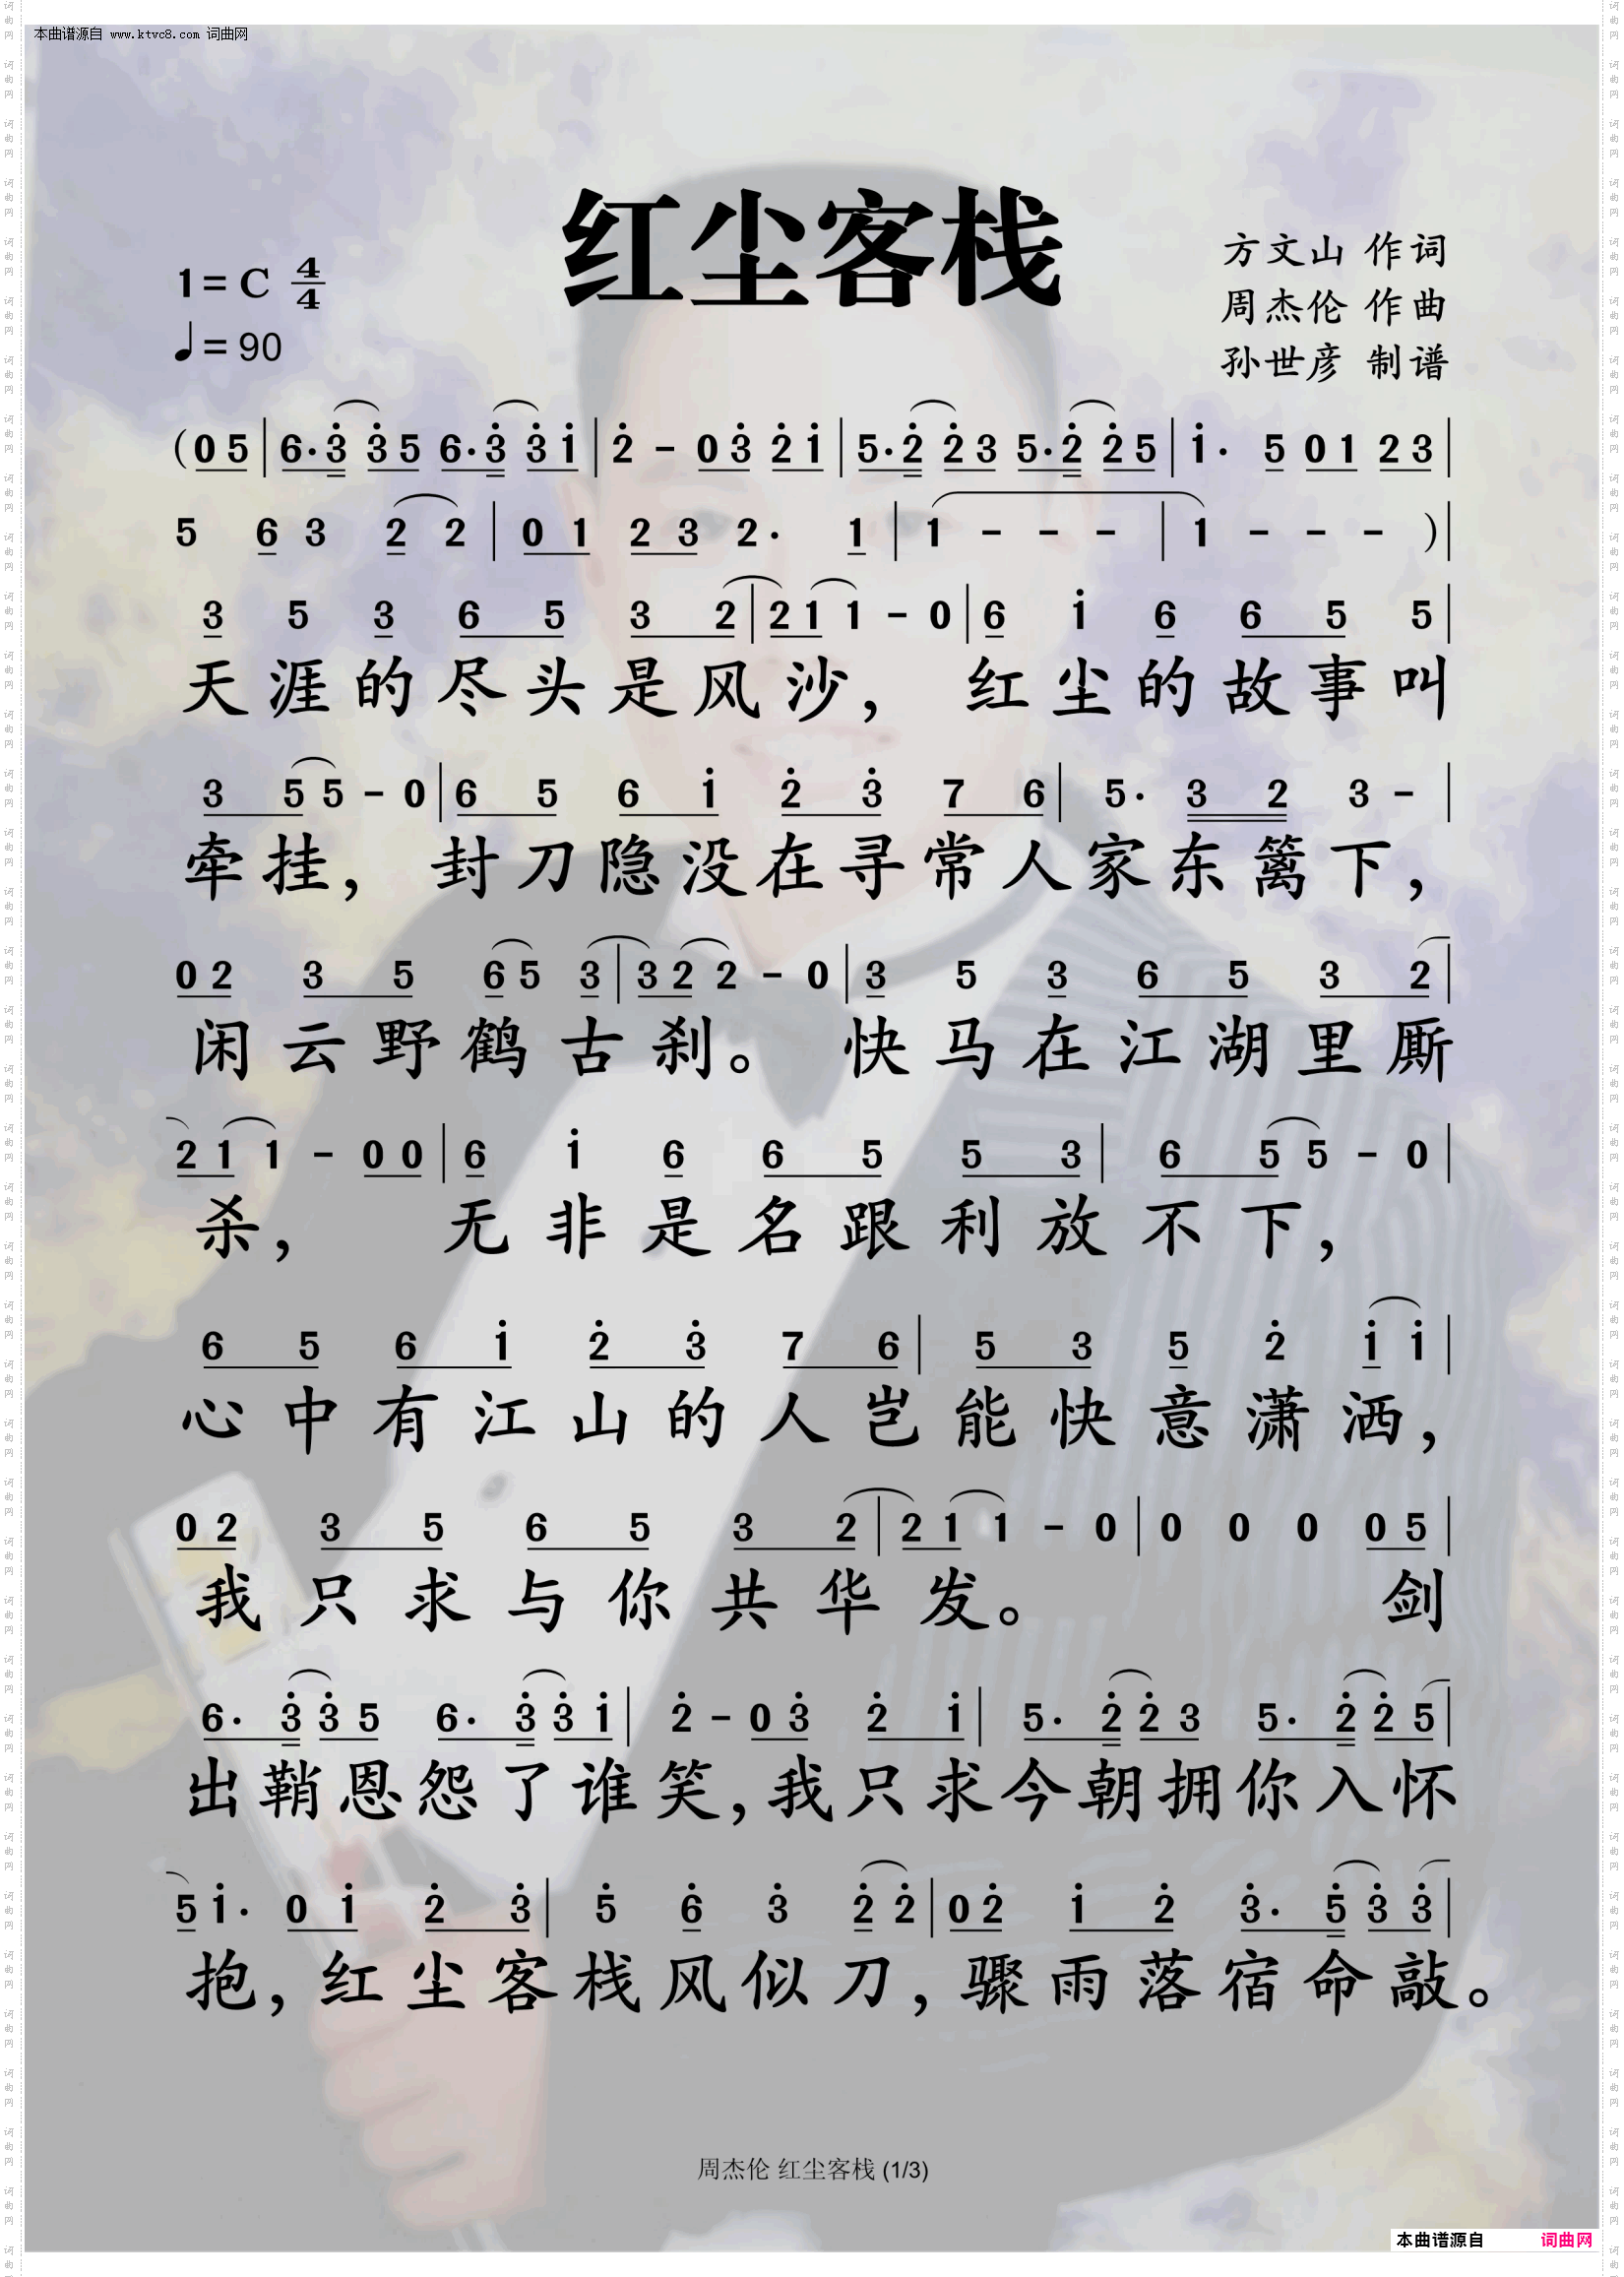 本曲谱源自 www.ktvc8.com 词曲网
红尘客栈
1=C 4/4
♩=90
方文山 作词
周杰伦 作曲
孙世彦 制谱
(0 5 | 6· 3̇ 3̇ 5 6· 3̇ 3̇ 1̇ | 2̇ - 0 3̇ 2̇ 1̇ | 5· 2̇ 2̇ 3 5· 2̇ 2̇ 5 | 1̇· 5 0 1 2 3 |
5 6 3 2 2 | 0 1 2 3 2· 1 | 1 - - - | 1 - - - ) |
3 5 3 6 5 3 2 | 2 1 1 - 0 | 6 1̇ 6 6 5 5 |
天涯的尽头是风沙， 红尘的故事叫
3 5 5 - 0 | 6 5 6 1̇ 2̇ 3̇ 7 6 | 5· 3 2 3 - |
牵挂， 封刀隐没在寻常人家东篱下，
0 2 3 5 6 5 3 | 3 2 2 - 0 | 3 5 3 6 5 3 2 |
闲云野鹤古刹。 快马在江湖里厮
2 1 1 - 0 0 | 6 1̇ 6 6 5 5 3 | 6 5 5 - 0 |
杀， 无非是名跟利放不下，
6 5 6 1̇ 2̇ 3̇ 7 6 | 5 3 5 2̇ 1̇ 1̇ |
心中有江山的人岂能快意潇洒，
0 2 3 5 6 5 3 2 | 2 1 1 - 0 | 0 0 0 0 5 |
我只求与你共华发。 剑
6· 3̇ 3̇ 5 6· 3̇ 3̇ 1̇ | 2̇ - 0 3̇ 2̇ 1̇ | 5· 2̇ 2̇ 3 5· 2̇ 2̇ 5 |
出鞘恩怨了谁笑，我只求今朝拥你入怀
5 1̇· 0 1̇ 2̇ 3̇ | 5̇ 6̇ 3̇ 2̇ 2̇ | 0 2̇ 1̇ 2̇ 3̇· 5̇ 3̇ 3̇ |
抱，红尘客栈风似刀，骤雨落宿命敲。
周杰伦 红尘客栈 (1/3)
本曲谱源自 词曲网